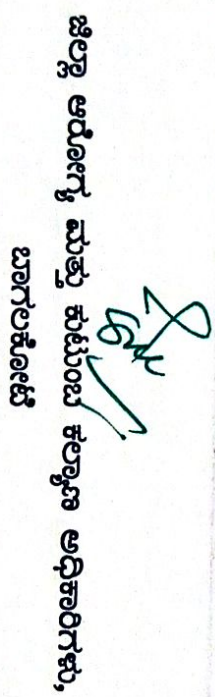 ಜಿಲ್ಲಾ ಆರೋಗ್ಯ ಮತ್ತು ಕುಟುಂಬ ಕಲ್ಯಾಣ ಅಧಿಕಾರಿಗಳು,
ಬಾಗಲಕೋಟೆ